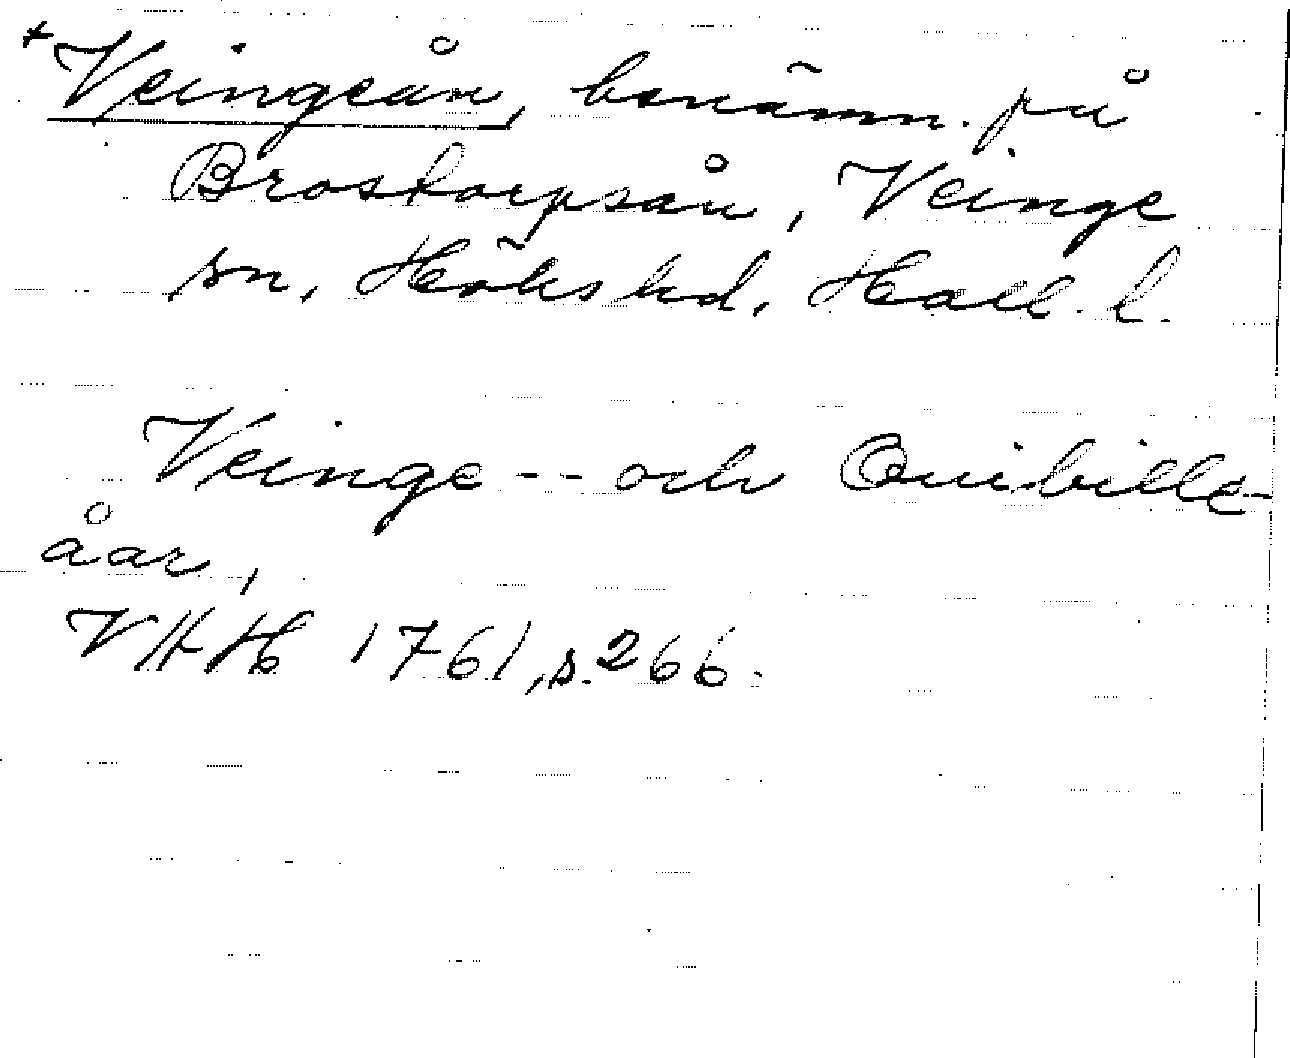 +Veingeån, benämn. på
Brostorpsån, Veinge
sn, Höks hd, Hall. l.
Veinge -- och Quibille-
åar,
VHH 1761, s. 266.